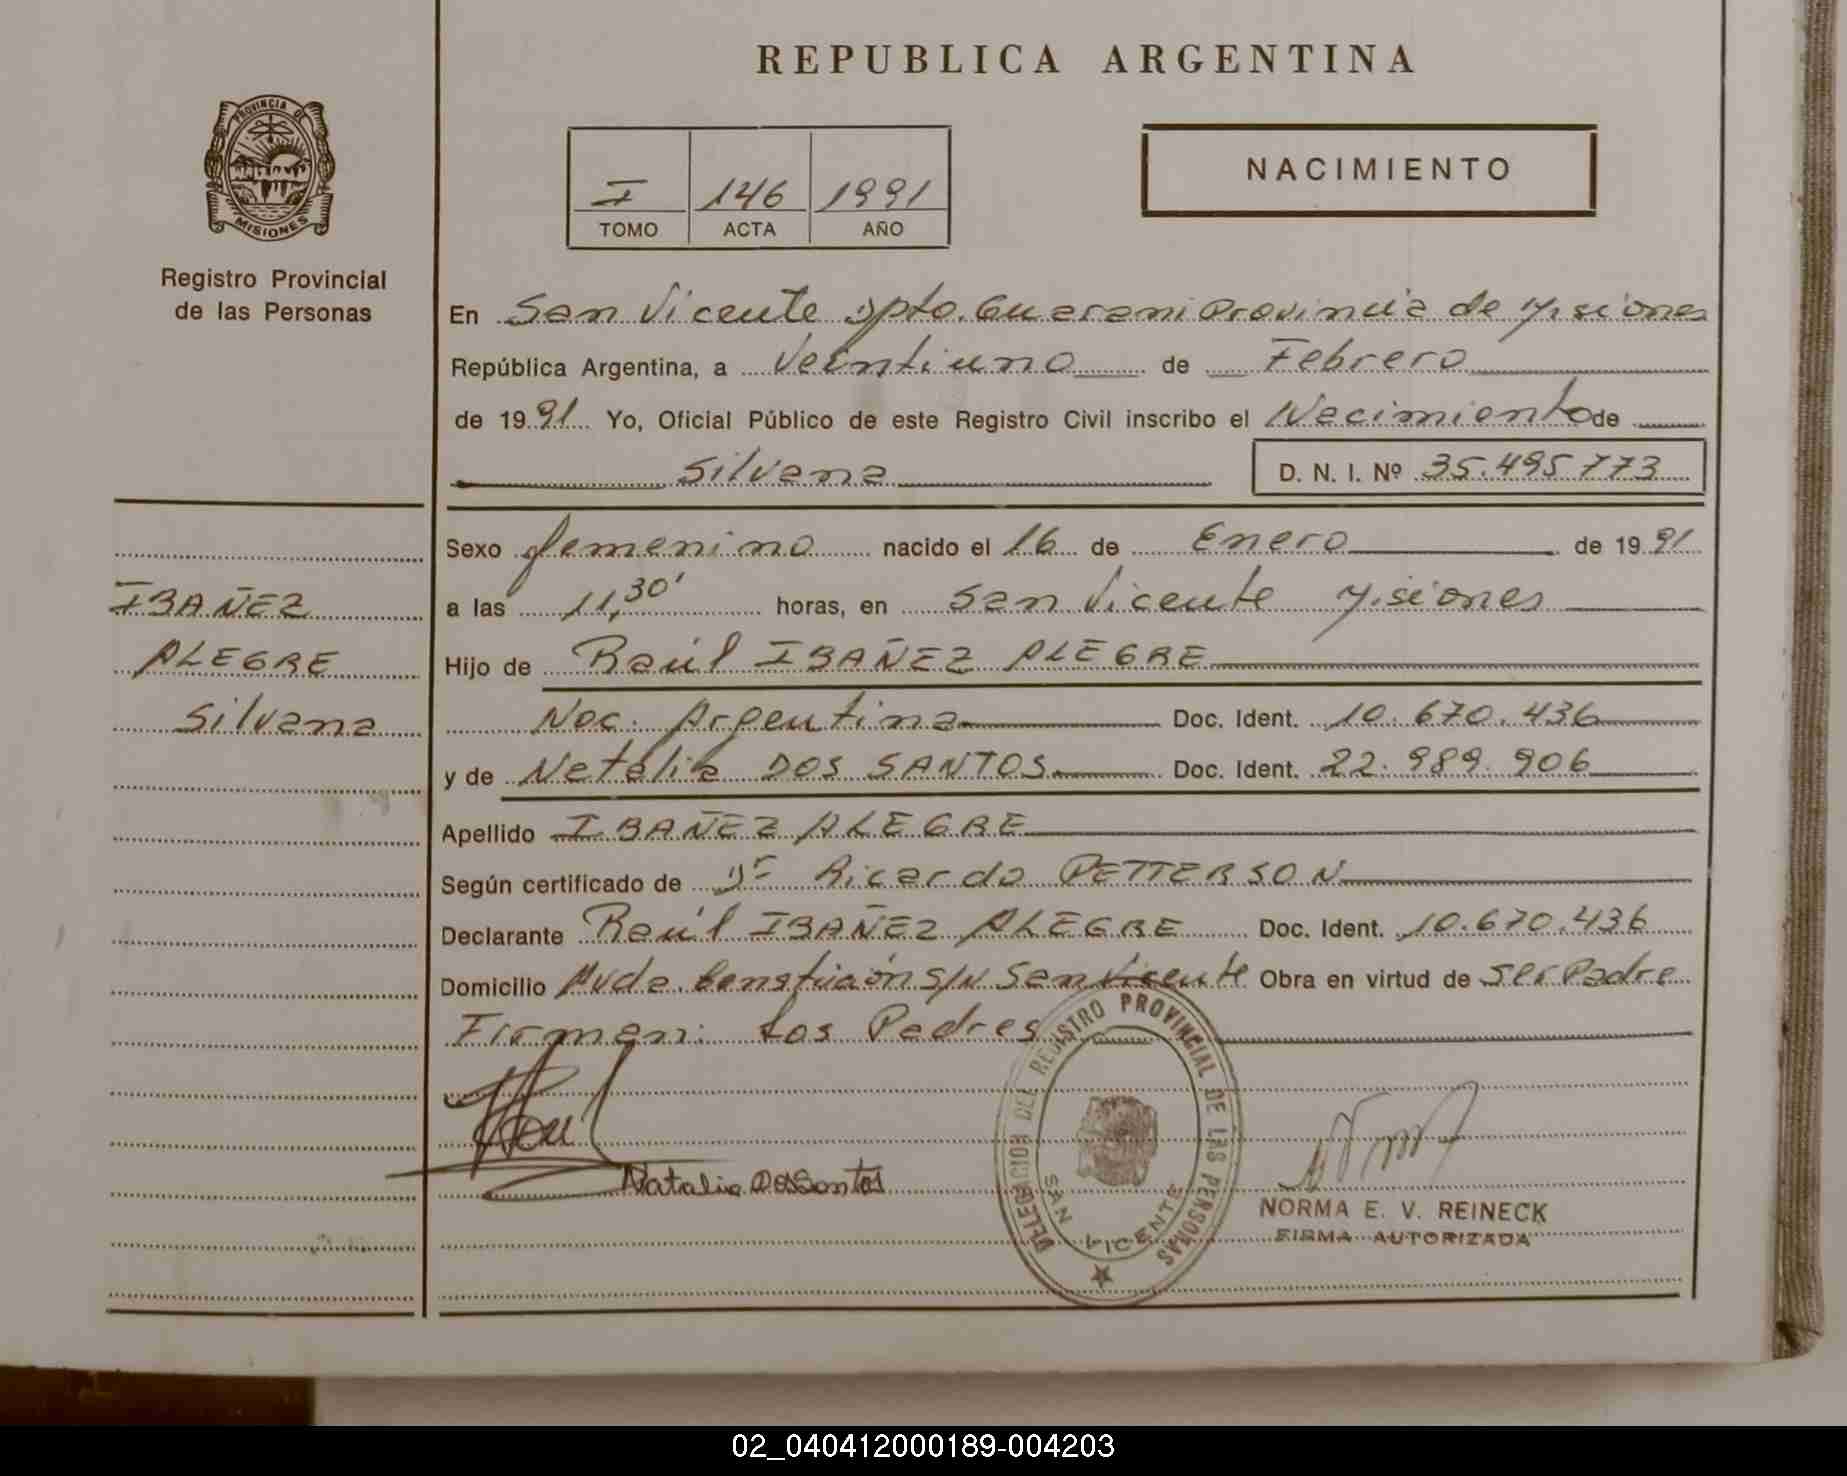 REPUBLICA ARGENTINA
PROVINCIA DE
MISIONES
Registro Provincial
de las Personas
I 146 1991
TOMO ACTA AÑO
NACIMIENTO
En San Vicente Dpto. Guarani Provincia de Misiones
República Argentina, a Veintiuno de Febrero
de 1991 Yo, Oficial Público de este Registro Civil inscribo el Nacimiento de
Silvana D. N. I. Nº 35.495.773
Sexo femenino nacido el 16 de Enero de 1991
a las 11,30' horas, en San Vicente Misiones
Hijo de Raúl IBAÑEZ ALEGRE
Nac. Argentina Doc. Ident. 10.670.436
y de Natalia DOS SANTOS Doc. Ident. 22.989.906
Apellido IBAÑEZ ALEGRE
Según certificado de Dr Ricardo PETTERSON
Declarante Raúl IBAÑEZ ALEGRE Doc. Ident. 10.670.436
Domicilio Avda. Constitución S/N San Vicente Obra en virtud de Ser Padre
Firman: Los Padres
IBAÑEZ
ALEGRE
Silvana
Natalia Dos Santos
DELEGACION DEL REGISTRO PROVINCIAL DE LAS PERSONAS
SAN VICENTE
NORMA E. V. REINECK
FIRMA AUTORIZADA
02_040412000189-004203